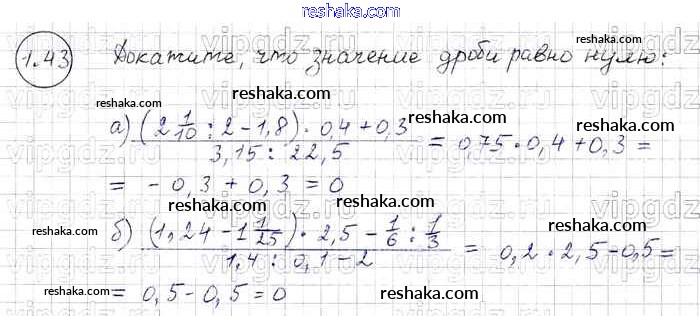 reshaka.com
1.43 Докажите, что значение дроби равно нулю:
reshaka.com
reshaka.com
а) ((2 1/10 : 2 - 1,8) · 0,4 + 0,3)/(3,15 : 22,5) = 0,75 · 0,4 + 0,3 =
reshaka.com
= - 0,3 + 0,3 = 0
reshaka.com
reshaka.com
б) ((1,24 - 1 1/25) · 2,5 - 1/6 : 1/3)/(1,4 : 0,1 - 2) = 0,2 · 2,5 - 0,5 =
reshaka.com
= 0,5 - 0,5 = 0
reshaka.com